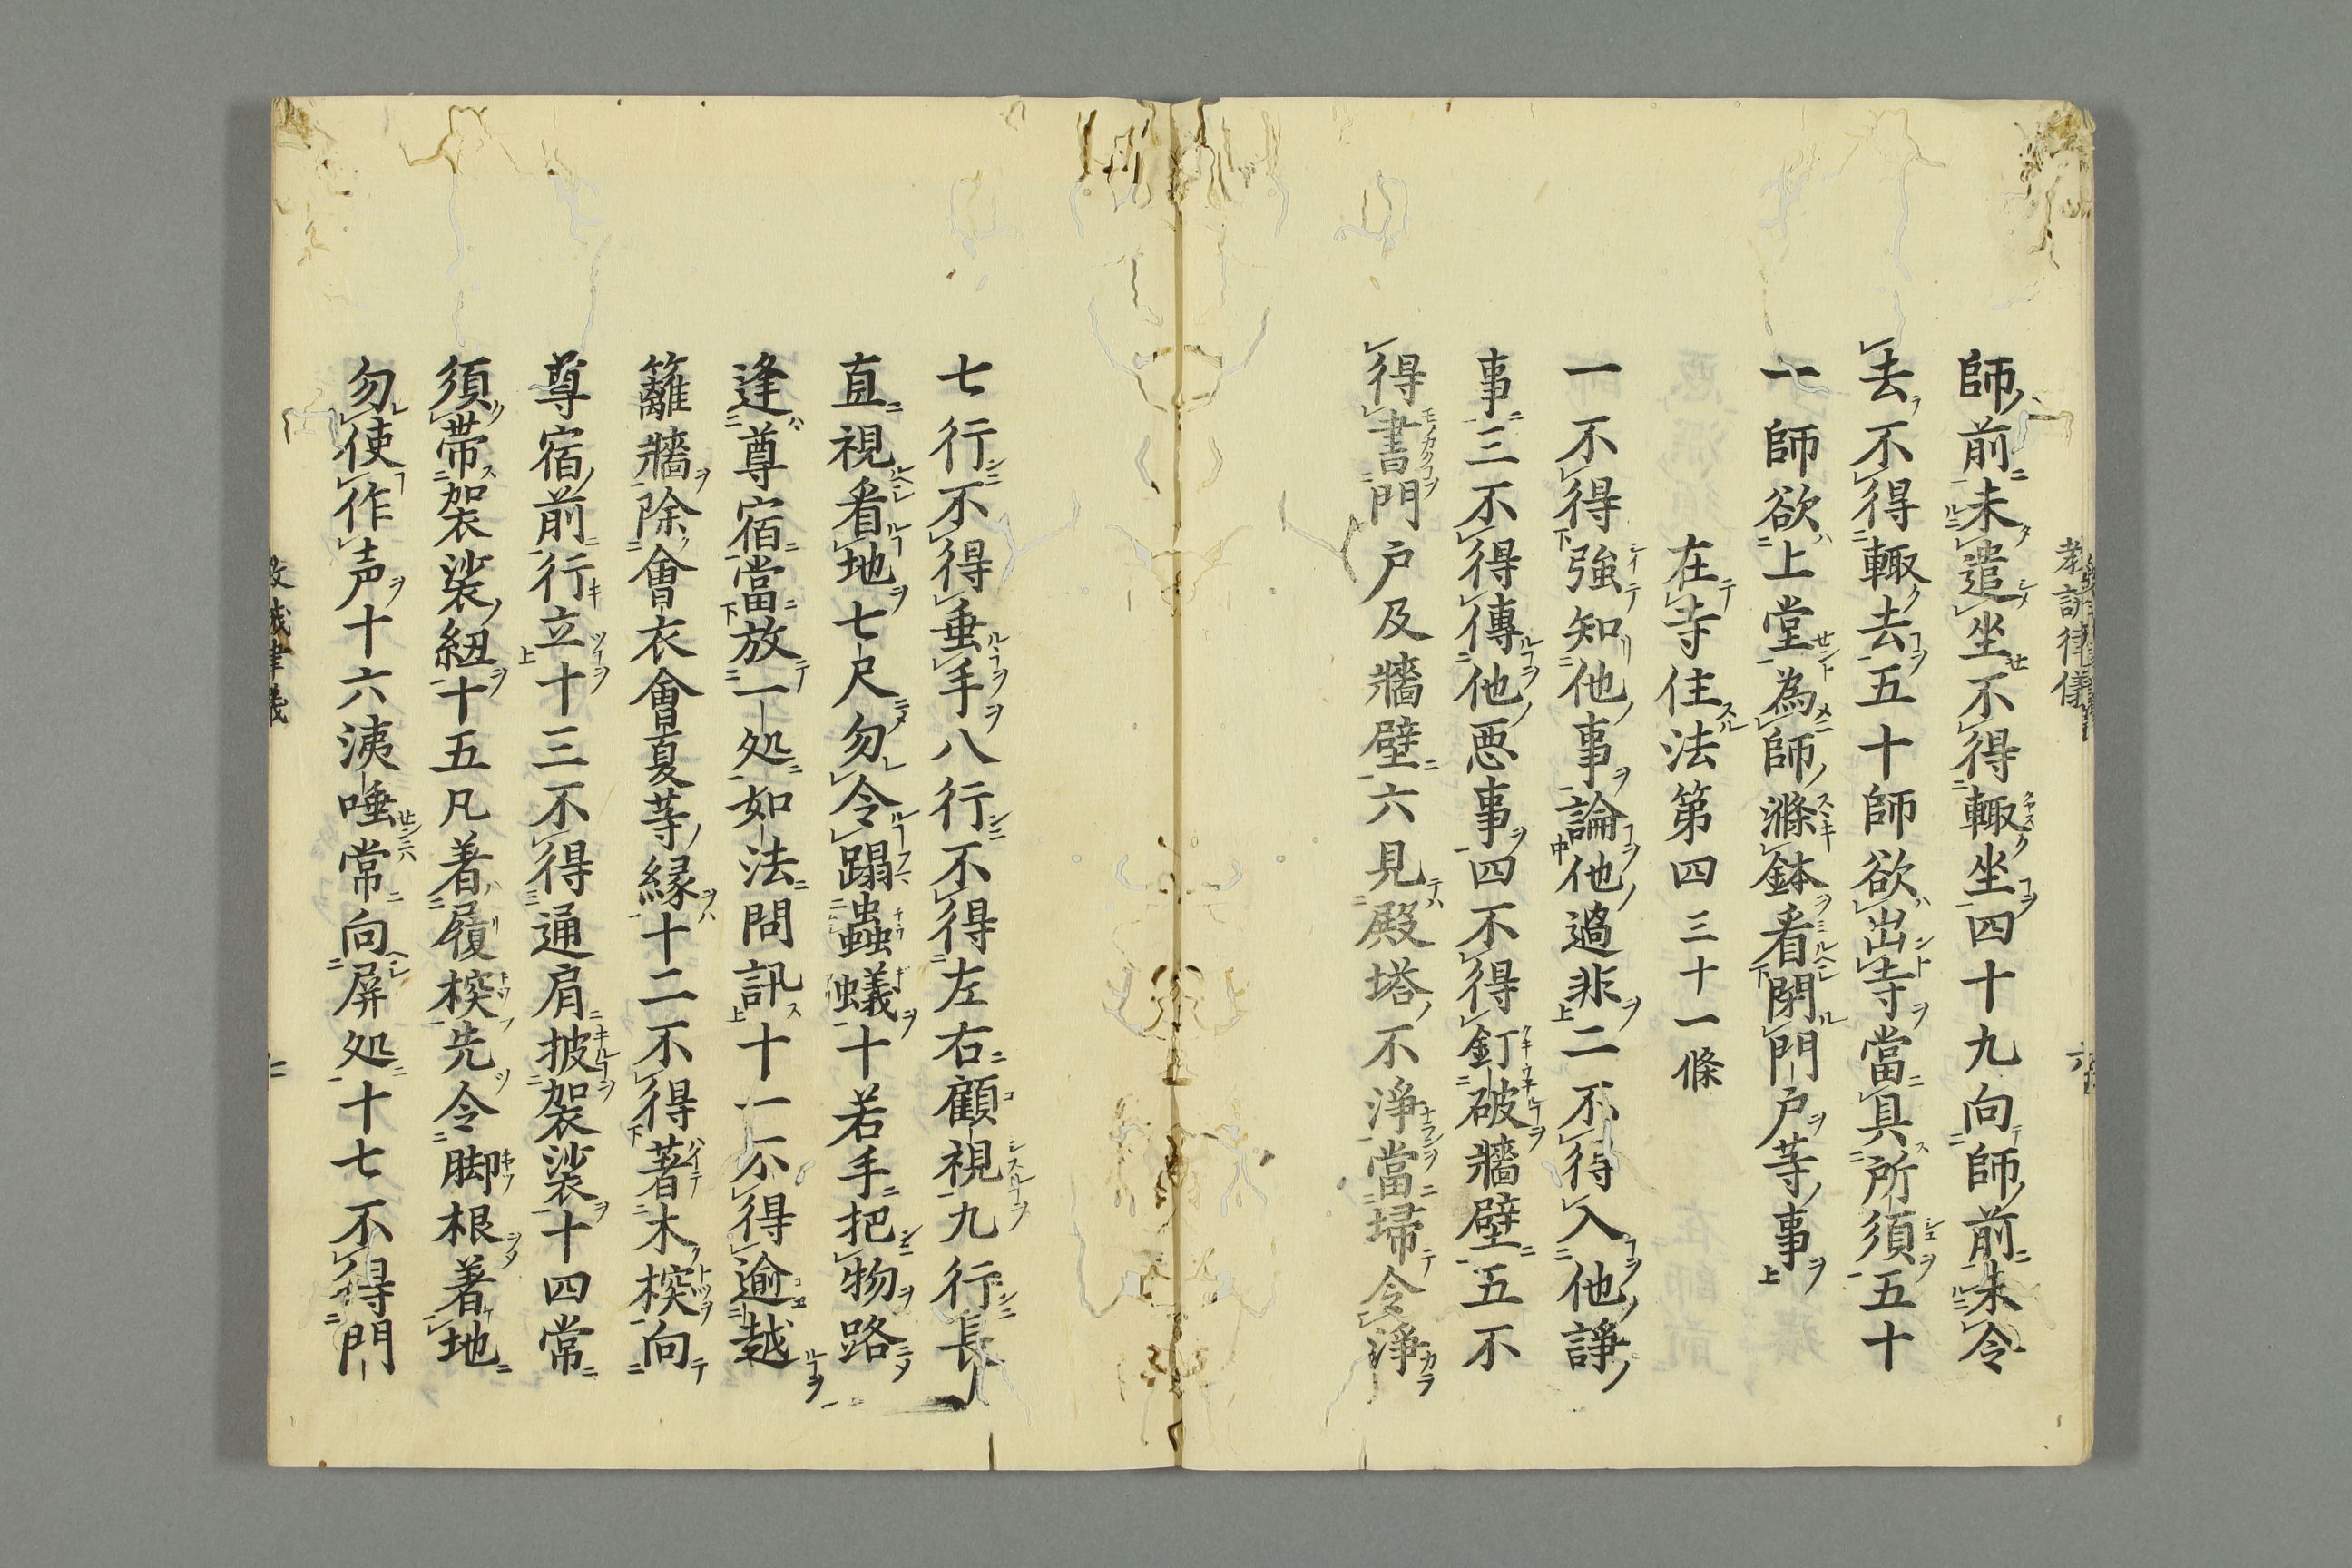 教誡律儀
六
師前未遣坐不得輙坐四十九向師前未令
去不得輙去五十師欲出寺當具所須五十
一師欲上堂為師滌鉢看閇門戸等事
在寺住法第四三十一條
一不得強知他事論他過非二不得入他諍
事三不得傳他悪事四不得釘破牆壁五不
得書門戸及牆壁六見殿塔不淨當掃令淨
七行不得垂手八行不得左右顧視九行長
直視看地七尺勿令蹋蟲蟻十若手把物路
逢尊宿當放一処如法問訊十一不得逾越
籬牆除會衣會夏等縁十二不得著木楔向
尊宿前行立十三不得通肩披袈裟十四常
須帯袈裟紐十五凡着履楔先令脚根着地
勿使作声十六洟唾常向屏処十七不得門
教誡律義